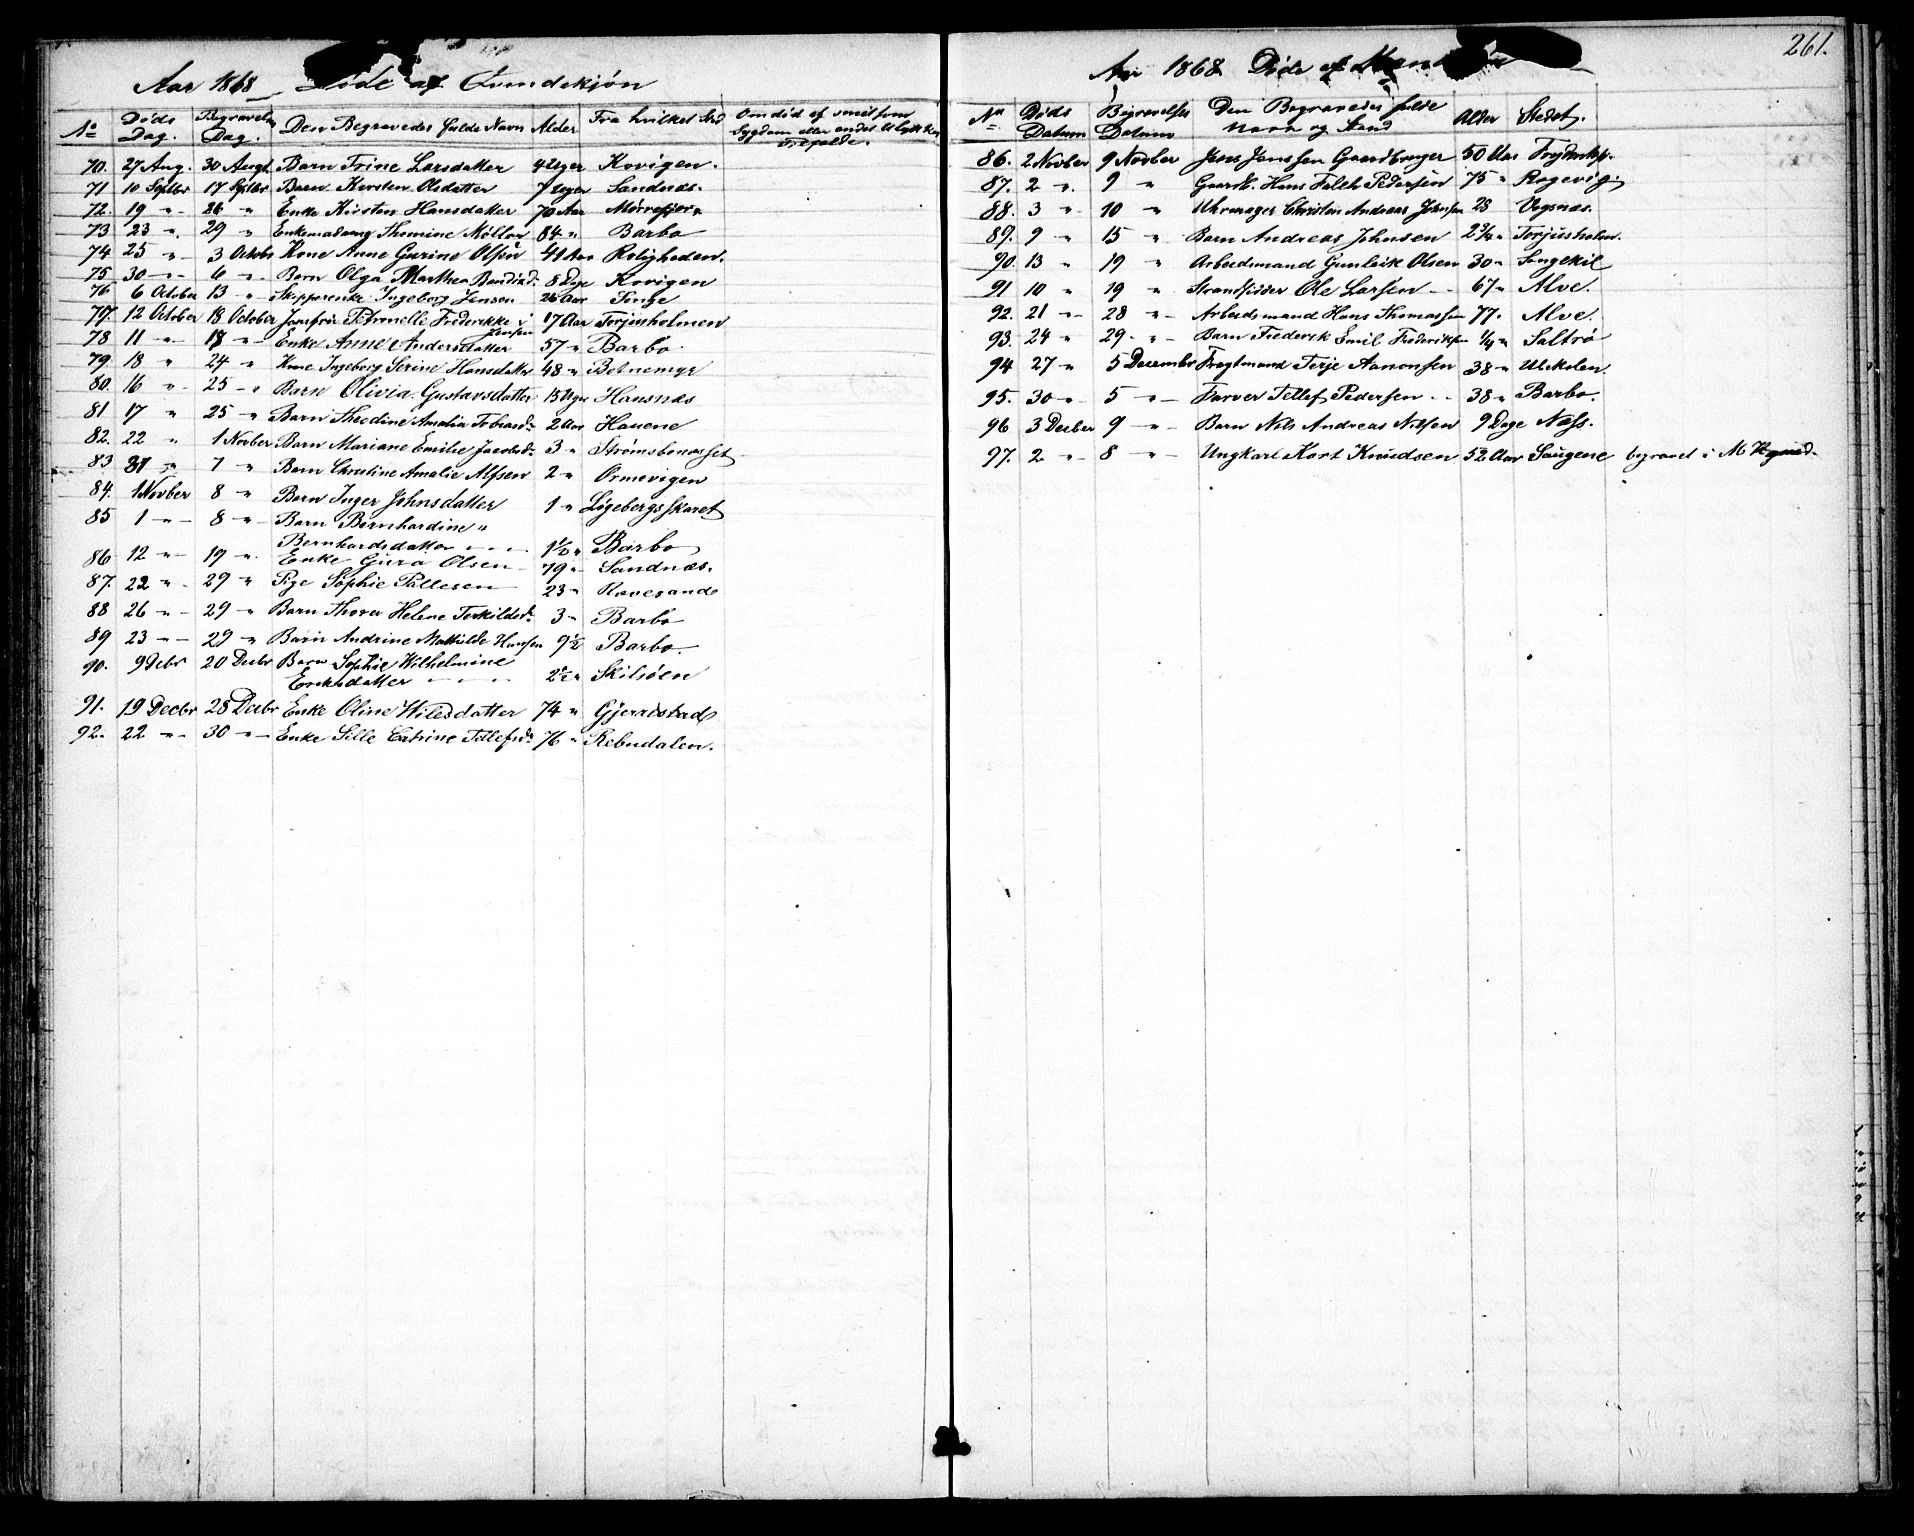 Aar 1868 Døde af Qvindekjøn
No Døds Dag. Begravelses Dag. Den Begravedes fulde Navn Alder Fra hvilket Sted Om død af smitsom
Sygdom eller andet Ulykkes
Tilfælde.
70. 27 Aug. 30 Augt Barn Trine Larsdatter 4 Uger Kovigen.
71 10 Septbr 17 Sptbr Barn Kirsten Olsdatter 7 Uger Sandnæs.
72. 19 " - 26 " Enke Kirsten Hansdatter 70 Aar Mørrefjær
73 23 ". 29 " Enkemadam Thomine Møller 84 " Barbo
74 25 " - 3 Octobr Kone Anne Gurine Olsen 41 Aar Roligheden.
75 30 " - 6 " - Barn Olga Marthea Bendixd. 8 Dage Kovigen
76 6 October 13 " - Skipperenke Ingeborg Jensen Tinge
77. 12 October 18 October Jomfru Petronelle Frederikke Jensen 17 Aar Torjusholmen
78 11 " - 18 " - Enke Anne Andersdatter 57 " Barbo
79. 18 " 24 " Kone Ingeborg Serine Hansdatter 48 " Botnemyr
80. 16 " - 25 - " Barn Olivia Gustavsdatter 15 Uger Hausnæs
81 17 " 25 - " Barn Theodine Amalia Tobiasd. 2 Aar Hauene
82. 22 " 1 Novber Barn Mariane Emilie Jacobsd. 3 " Strømsbonesset
83 31 " 7 " Barn Christine Amalie Alfsen 2 " Ormevigen
84. 1 Novber 8 " Barn Inger Johnsdatter 1 " Løgebergsskaret
85 1 " - 8 " - Barn Bernhardine "
Bernhardsdatter - - - 1½ " Barbo
86 12 " - 19 " Enke Gura Olsen - 79 " Sandnæs.
87. 22 " - 29 " Pige Sophie Pallesen 23 " Ravesand
88 26 " - 29 " Barn Thora Helene Terkildsd. 3 " Barbo
89 23 " - 29 " Barn Andrine Mathilde Hansen 9½ Barbo.
90. 9 Debr 20 Decbr Barn Sophie Wilhelmine
Eriksdatter - - - 2½ " Skilsøen
91. 19 Decbr 28 Decbr Enke Oline Nilsdatter 74 " Gjerrestad
92. 22 " - 30 " - Enke Sille Catrine Tellefsd. 76 " Rebndalen.
261.
Aar 1868 Døde af
No Døds Datum Begravelses Datum Den Begravedes fulde Navn og Stand Alder Stedet.
86. 2 Novber 9 Novber Jens Jenssen Gaardbruger 50 Aar
87. 2 ". 9 " Gaardb. Hans Falch Pedersen 75 " Rægevig.
88. 3 " 10 " Uhrmager Christen Andreas Johnsen 23 Vogsnæs.
89. 9 " 15 " Barn Andreas Johnsen 2¾ " Torjusholm.
90. 13 " 19 " Arbeidsmand Gunleik Olsen 30 " Songekil
91 10 " 19 " Strandsidder Ole Larsen - - 67 " Alve.
92. 21 " - 28 " - Arbeidsmand Hans Thomassen 77. Alve.
93. 24 " 29. - " - Barn Frederik Emil Frederiksen ¼ " Saltrø
94 27 " 5 December Fragtmand Terje Aanonsen 38 " Ulekalen.
95. 30 " - 5 " - Farver Tellef Pedersen - - 38 " Barbo.
96 3 Decber 9 " - Barn Nils Andreas Nilsen 9 Dage Næss.
97. 2 " - 8 " - Ungkarl Kort Knudsen 52 Aar Saugene begravet i